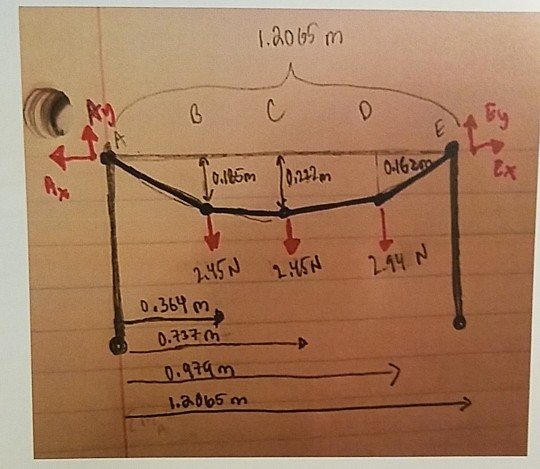 1.2065 m
Ay
B C D
A
E
Ey
Ax
Ex
0.185m
0.162m
2.45 N
2.45 N
2.94 N
0.364 m
0.737 m
0.979 m
1.2065 m